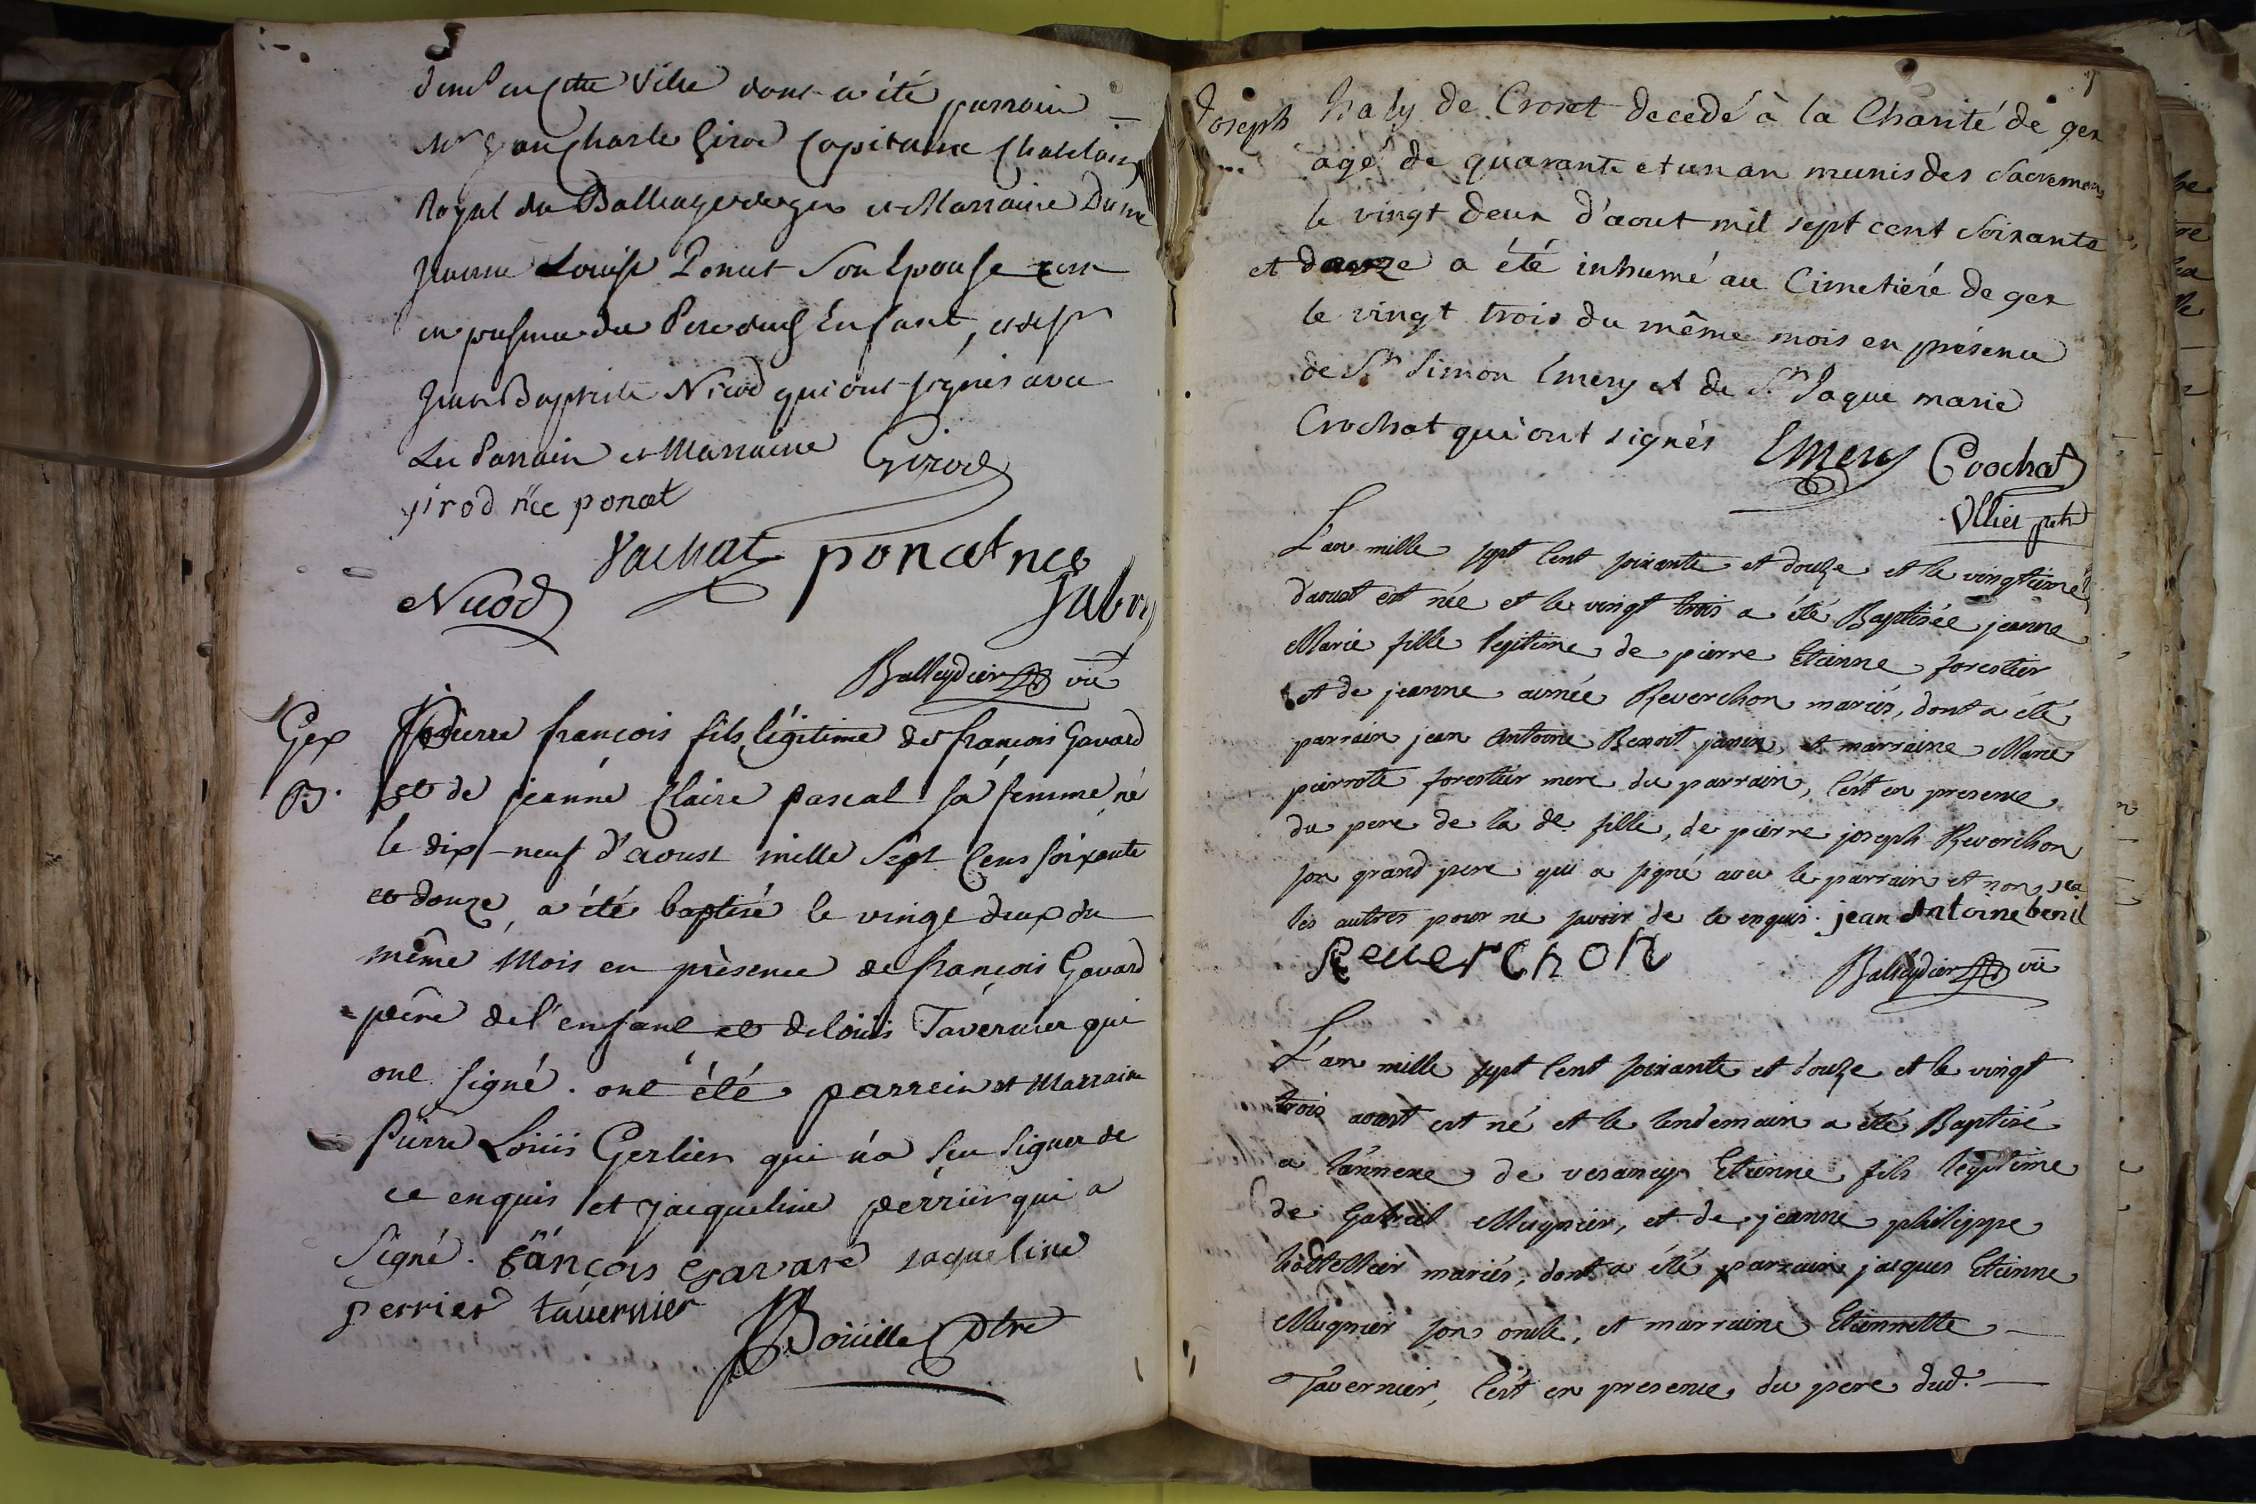 demt en cette Ville dont a été parrain
Mr Jean Charle Girod Capitaine Chatelain
Royal du Balliage de gex et Marraine Dame
Jeanne Louise Poncet Son Epouse
en presence du Pere dud Enfant, et de Sr
Jean Baptiste Nicod qui ont signés avec
Les Parrain et Marraine Girod
girod née poncet
Vachat poncet nee
Nicod Fabry
Balleydier vic
Gex Pierre françois fils légitime de françois Gavard
B. et de jeanne Claire pascal sa femme né
le dix-neuf d'aoust mille Sept Cens soixante
et douze, a été baptisé le vingt deux du
même Mois en présence de françois Gavard
pére de l'enfant et de loüis Tavernier qui
ont signé. ont été parrein et Marraine
Pierre Loüis Gerlier qui n'a sçu signer de
ce enquis et jacqueline perrier qui a
Signé. fançois gavard jaqueline
perrier tavernier
Boüille ptre
Joseph haly de Crozet decedé à la Charité de gex
agé de quarante et un an munis des Sacremens
le vingt deux d'aout mil sept cent soixante
et douze a été inhumé au Cimetiere de gex
le vingt trois du même mois en présence
de Sr Simon Emery et du Sr Jaque marie
Crochat qui ont signés Emery Crochat
Ullier ptr
L'an mille sept Cent soixante et douze et le vingtieme
d'aoust est née et le vingt trois a été Baptisée jeanne
Marie fille legitime de pierre Etienne forestier
et de jeanne aimée Reverchon mariés, dont a été
parrain jean Antoine Benoit janin et marraine Marie
pierrote forestier mere du parrain, C'ést en presence
du pere de la de fille, de pierre joseph Reverchon
son grand pere qui a signé avec le parrain et non
les autres pour ne savoir de ce enquis. jean Antoine benit
Reverchon Balleydier vic
L'an mille sept Cent soixante et douze et le vingt
trois aoust est né et le lendemain a été Baptisé
a l'annexe de vesancy Etienne fils legitime
de Gabriel Mugnier, et de jeanne philippe
hottellier mariés, dont a été parrain jacques Etienne
Mugnier son oncle, et marraine Etiennette
Tavernier, C'ést en presence du pere dud.